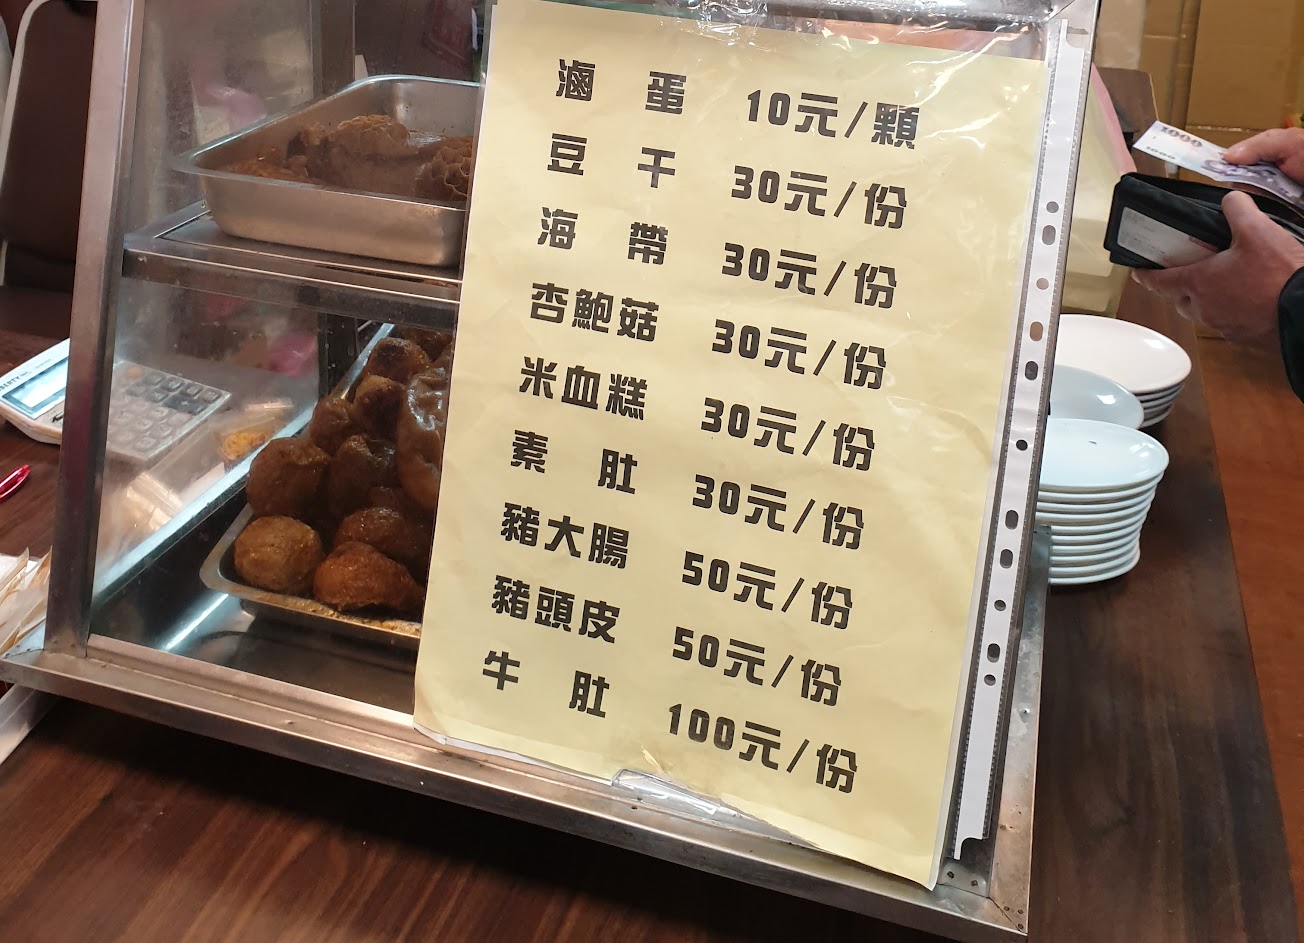 滷蛋 10元/顆
豆干 30元/份
海帶 30元/份
杏鮑菇 30元/份
米血糕 30元/份
素肚 30元/份
豬大腸 50元/份
豬頭皮 50元/份
牛肚 100元/份
1000